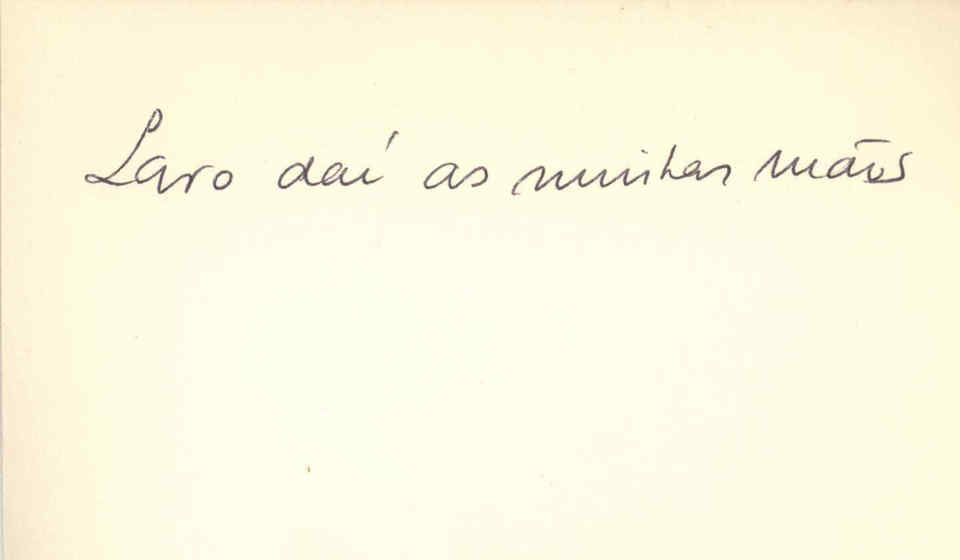 Lavo daí as minhas mãos